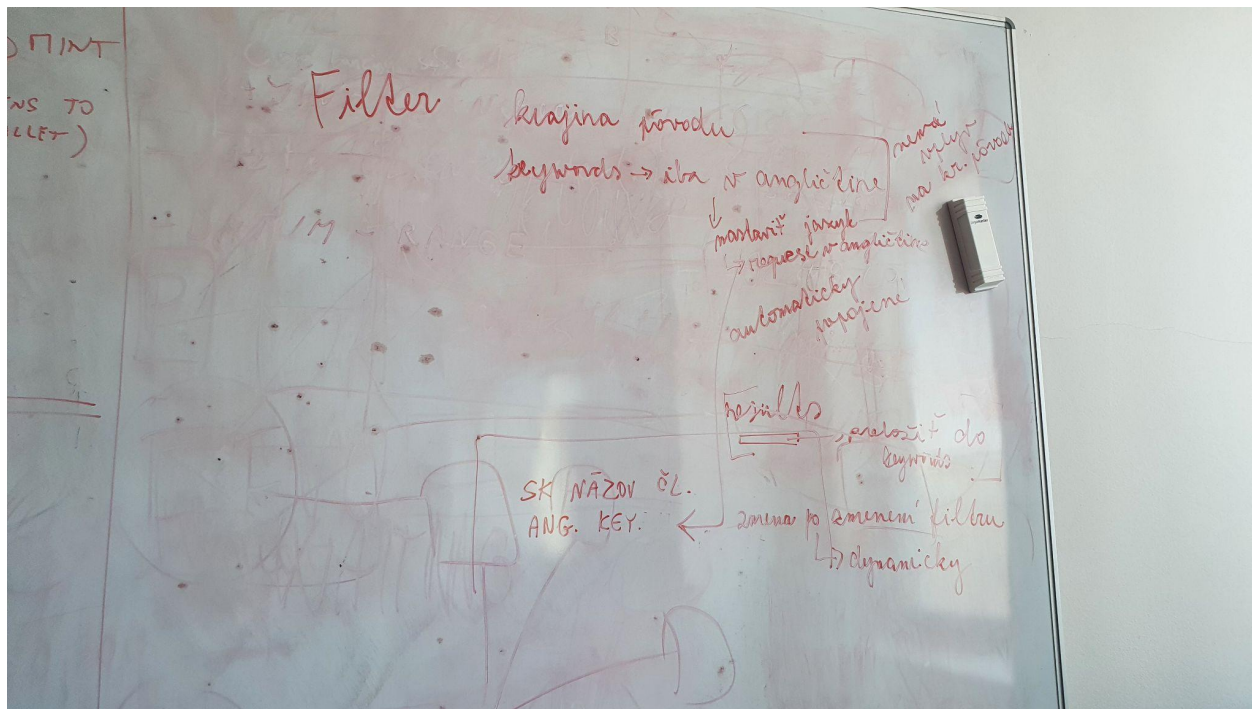 MINT
NS TO
LLET)
Filter
krajina pôvodu
keywords → iba v angličtine
nemá
vplyv
na kr. pôvodu
↓
nastaviť jazyk
↳ request v angličtine
automaticky
popojené
M - RANGE
preložiť do
keywords
SK NÁZOV ČL.
ANG. KEY. ←
zmena po zmenení filtru
↳ dynamicky